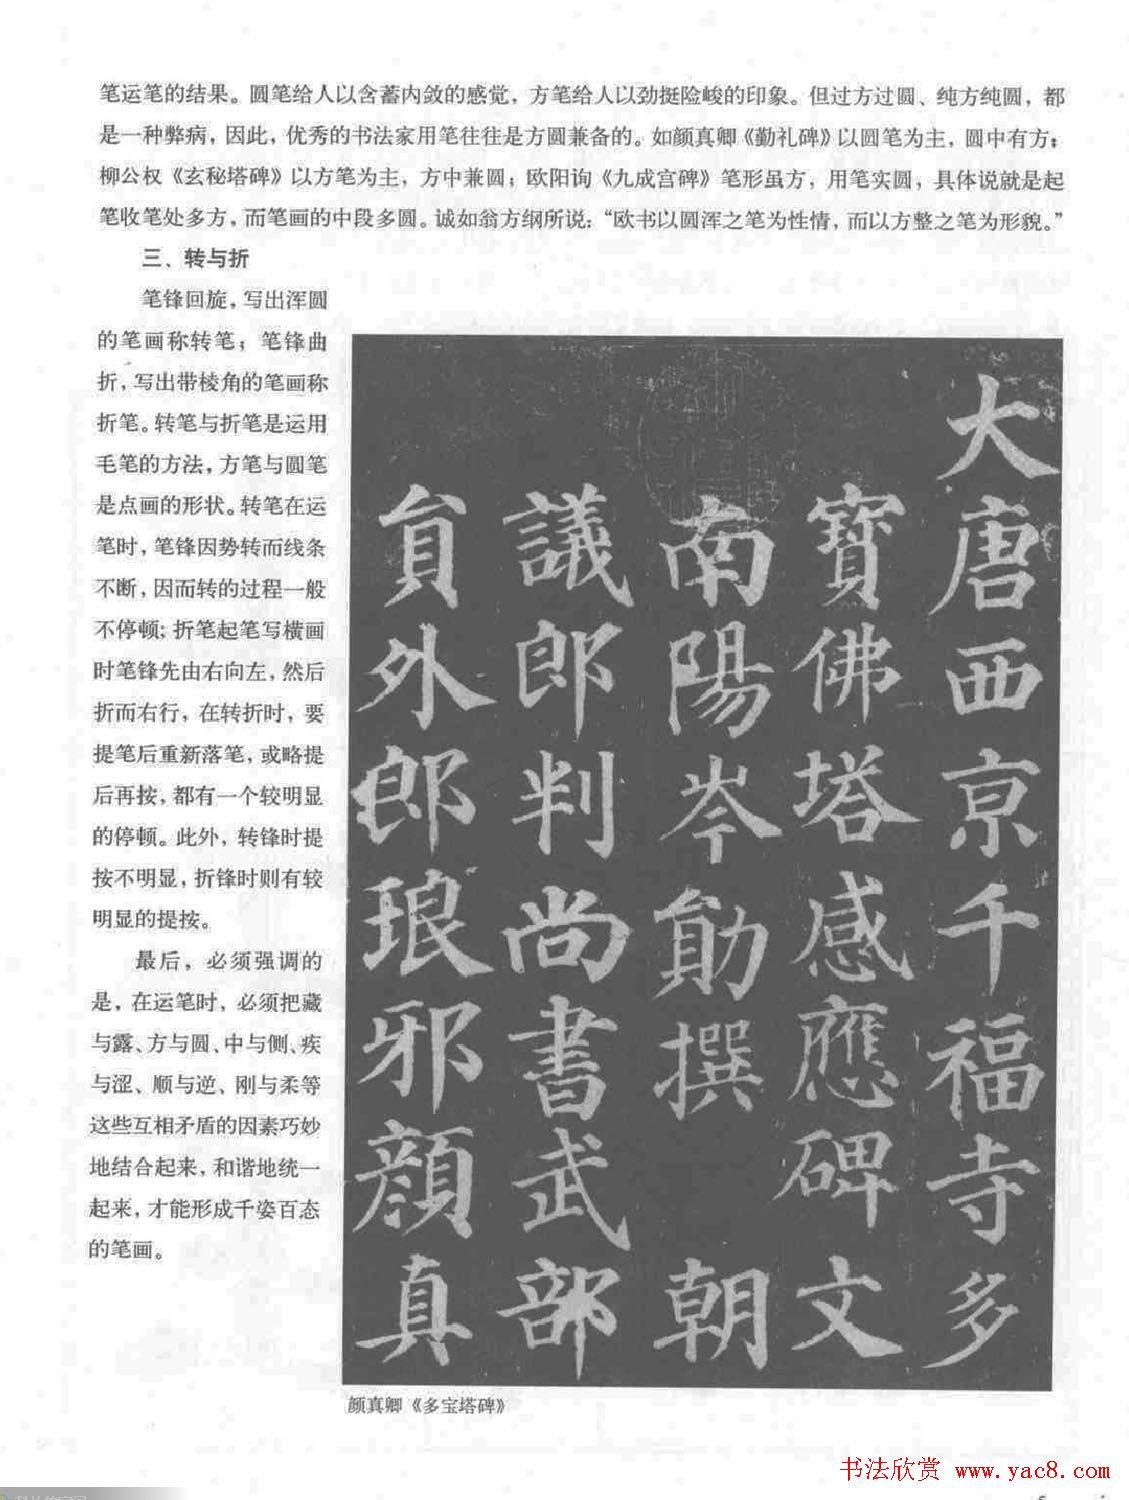 笔运笔的结果。圆笔给人以含蓄内敛的感觉，方笔给人以劲挺险峻的印象。但过方过圆、纯方纯圆，都
是一种弊病，因此，优秀的书法家用笔往往是方圆兼备的。如颜真卿《勤礼碑》以圆笔为主，圆中有方；
柳公权《玄秘塔碑》以方笔为主，方中兼圆；欧阳询《九成宫碑》笔形虽方，用笔实圆，具体说就是起
笔收笔处多方，而笔画的中段多圆。诚如翁方纲所说：“欧书以圆浑之笔为性情，而以方整之笔为形貌。”
三、转与折
笔锋回旋，写出浑圆
的笔画称转笔；笔锋曲
折，写出带棱角的笔画称
折笔。转笔与折笔是运用
毛笔的方法，方笔与圆笔
是点画的形状。转笔在运
笔时，笔锋因势转而线条
不断，因而转的过程一般
不停顿；折笔起笔写横画
时笔锋先由右向左，然后
折而右行，在转折时，要
提笔后重新落笔，或略提
后再按，都有一个较明显
的停顿。此外，转锋时提
按不明显，折锋时则有较
明显的提按。
最后，必须强调的
是，在运笔时，必须把藏
与露、方与圆、中与侧、疾
与涩、顺与逆、刚与柔等
这些互相矛盾的因素巧妙
地结合起来，和谐地统一
起来，才能形成千姿百态
的笔画。
大唐西京千福寺多
寶佛塔感應碑文
南陽岑勛撰 朝
議郎判尚書武部
貟外郎琅邪顔真
颜真卿《多宝塔碑》
书法欣赏 www.yac8.com